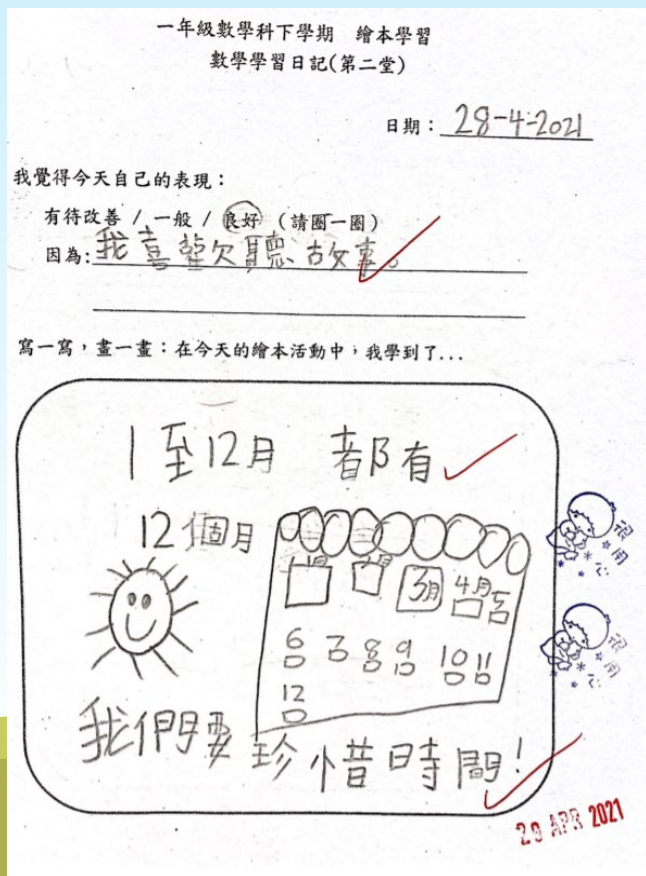 一年級數學科下學期　繪本學習
數學學習日記(第二堂)
日期：28-4-2021
我覺得今天自己的表現：
有待改善 / 一般 / 良好 （請圈一圈）
因為：我喜歡聽故事。
寫一寫，畫一畫：在今天的繪本活動中，我學到了...
1至12月 都有
12個月
3月 4月 5
6 7 8 9 10 11
12
我們要珍惜時間！
很用心
很用心
29 APR 2021